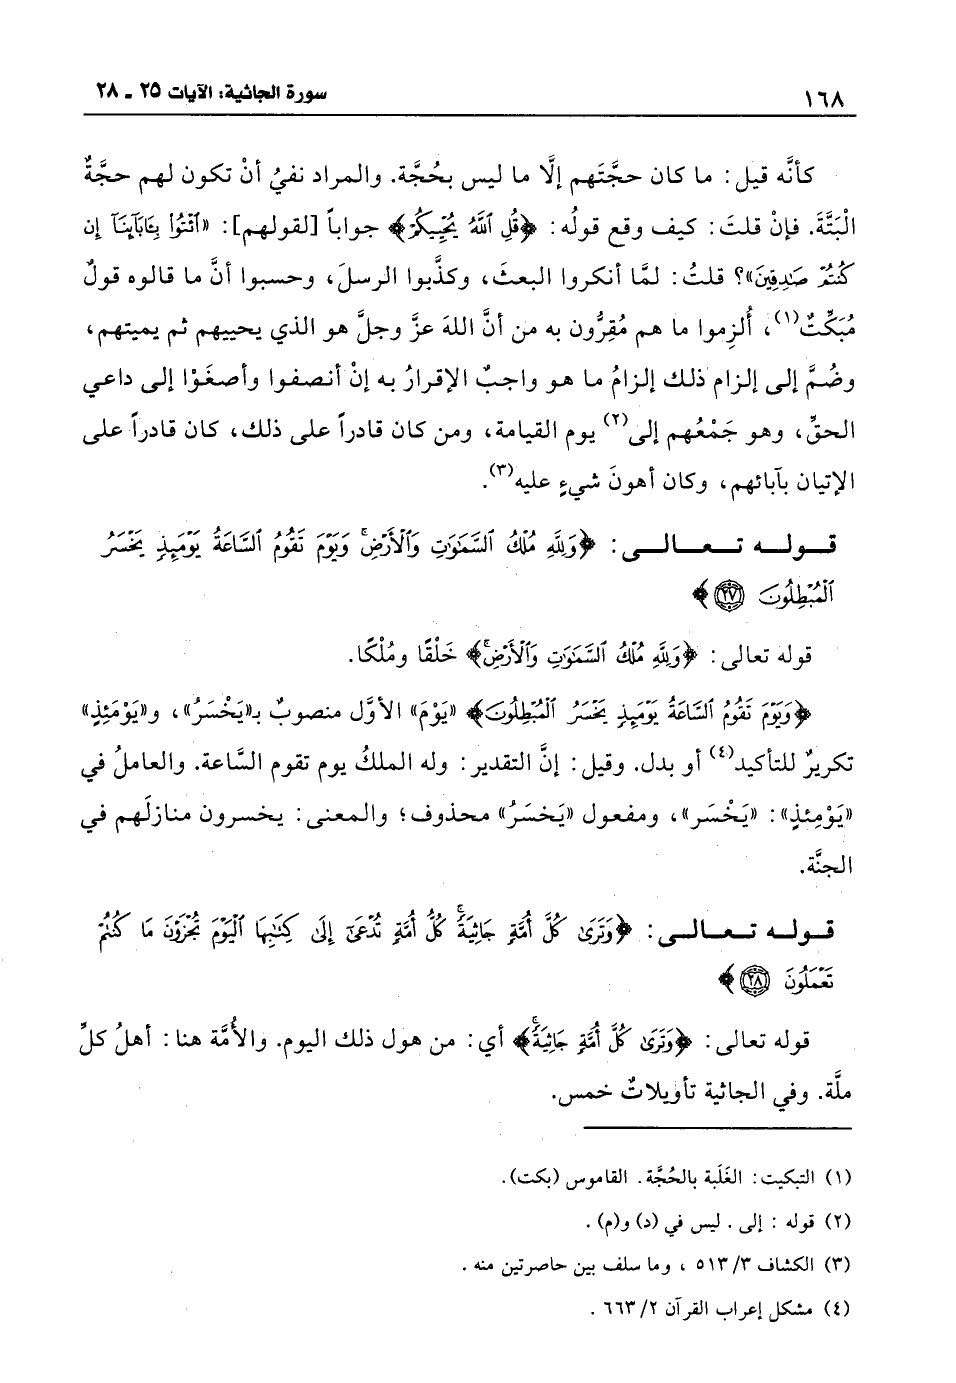 ١٦٨
سورة الجاثية: الآيات ٢٥ ـ ٢٨
كأنَّه قيل: ما كان حجَّتَهم إلَّا ما ليس بحُجَّة. والمراد نفيُ أنْ تكون لهم حجَّةٌ
الْبَتَّةَ. فإنْ قلتَ: كيف وقع قولُه: ﴿قُلِ ٱللَّهُ يُحْيِيكُمْ﴾ جواباً [لقولهم]: «ٱئْتُواْ بِـَٔابَآئِنَآ إِن
كُنتُمْ صَٰدِقِينَ»؟ قلتُ: لمَّا أنكروا البعثَ، وكذَّبوا الرسلَ، وحسبوا أنَّ ما قالوه قولٌ
مُبَكِّتٌ(١)، أُلزِموا ما هم مُقِرُّون به من أنَّ اللهَ عزَّ وجلَّ هو الذي يحييهم ثم يميتهم،
وضُمَّ إلى إلزام ذلك إلزامُ ما هو واجبٌ الإقرارُ به إنْ أنصفوا وأصغَوْا إلى داعي
الحقِّ، وهو جَمْعُهم إلى(٢) يوم القيامة، ومن كان قادراً على ذلك، كان قادراً على
الإتيان بآبائهم، وكان أهونَ شيءٍ عليه(٣).
قوله تعالى: ﴿وَلِلَّهِ مُلْكُ ٱلسَّمَٰوَٰتِ وَٱلْأَرْضِ ۚ وَيَوْمَ تَقُومُ ٱلسَّاعَةُ يَوْمَئِذٍ يَخْسَرُ
ٱلْمُبْطِلُونَ ۝٢٧﴾
قوله تعالى: ﴿وَلِلَّهِ مُلْكُ ٱلسَّمَٰوَٰتِ وَٱلْأَرْضِ ۚ﴾ خَلْقًا ومُلْكًا.
﴿وَيَوْمَ تَقُومُ ٱلسَّاعَةُ يَوْمَئِذٍ يَخْسَرُ ٱلْمُبْطِلُونَ﴾ «يَوْمَ» الأوَّل منصوبٌ بـ«يَخْسَرُ»، و«يَوْمَئِذٍ»
تكريرٌ للتأكيد(٤) أو بدل. وقيل: إنَّ التقدير: وله الملكُ يوم تقوم السَّاعة. والعاملُ في
«يَوْمِئذٍ»: «يَخْسَر»، ومفعول «يَخسَرُ» محذوف؛ والمعنى: يخسرون منازلَهم في
الجنَّة.
قوله تعالى: ﴿وَتَرَىٰ كُلَّ أُمَّةٍ جَاثِيَةً ۚ كُلُّ أُمَّةٍ تُدْعَىٰٓ إِلَىٰ كِتَٰبِهَا ٱلْيَوْمَ تُجْزَوْنَ مَا كُنتُمْ
تَعْمَلُونَ ۝٢٨﴾
قوله تعالى: ﴿وَتَرَىٰ كُلَّ أُمَّةٍ جَاثِيَةً ۚ﴾ أي: من هول ذلك اليوم. والأُمَّة هنا: أهلُ كلِّ
ملَّة. وفي الجاثية تأويلاتٌ خمس.
(١) التبكيت: الغَلَبة بالحُجَّة. القاموس (بكت).
(٢) قوله : إلى . ليس في (د) و(م) .
(٣) الكشاف ٣/ ٥١٣ ، وما سلف بين حاصرتين منه .
(٤) مشكل إعراب القرآن ٢/ ٦٦٣ .